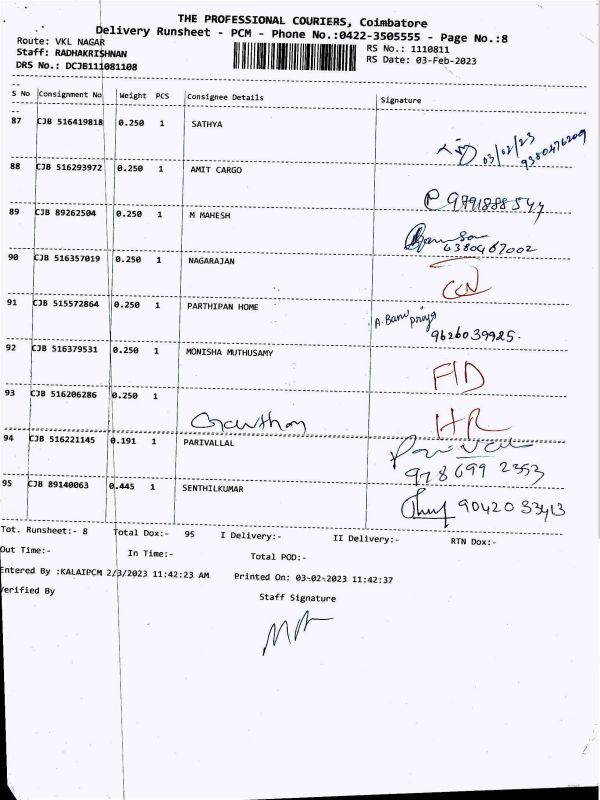 THE PROFESSIONAL COURIERS, Coimbatore
Delivery Runsheet - PCM - Phone No.:0422-3505555 - Page No.:8
Route: VKL NAGAR
RS No.: 1110811
Staff: RADHAKRISHNAN
RS Date: 03-Feb-2023
DRS No.: DCJB111081108
S No Consignment No Weight PCS Consignee Details Signature
87 CJB 516419818 0.250 1 SATHYA
03/02/23
9380476209
88 CJB 516293972 0.250 1 AMIT CARGO
9791888544
89 CJB 89262504 0.250 1 M MAHESH
6380467002
90 CJB 516357019 0.250 1 NAGARAJAN
91 CJB 515572864 0.250 1 PARTHIPAN HOME
A. Banu Priya
9626039925.
92 CJB 516379531 0.250 1 MONISHA MUTHUSAMY
FID
93 CJB 516206286 0.250 1
Gowtham HR
94 CJB 516221145 0.191 1 PARIVALLAL
978 699 2353
95 CJB 89140063 0.445 1 SENTHILKUMAR
90420 33413
Tot. Runsheet:- 8 Total Dox:- 95 I Delivery:- II Delivery:- RTN Dox:-
Out Time:- In Time:- Total POD:-
Entered By :KALAIPCM 2/3/2023 11:42:23 AM Printed On: 03-02-2023 11:42:37
Verified By Staff Signature